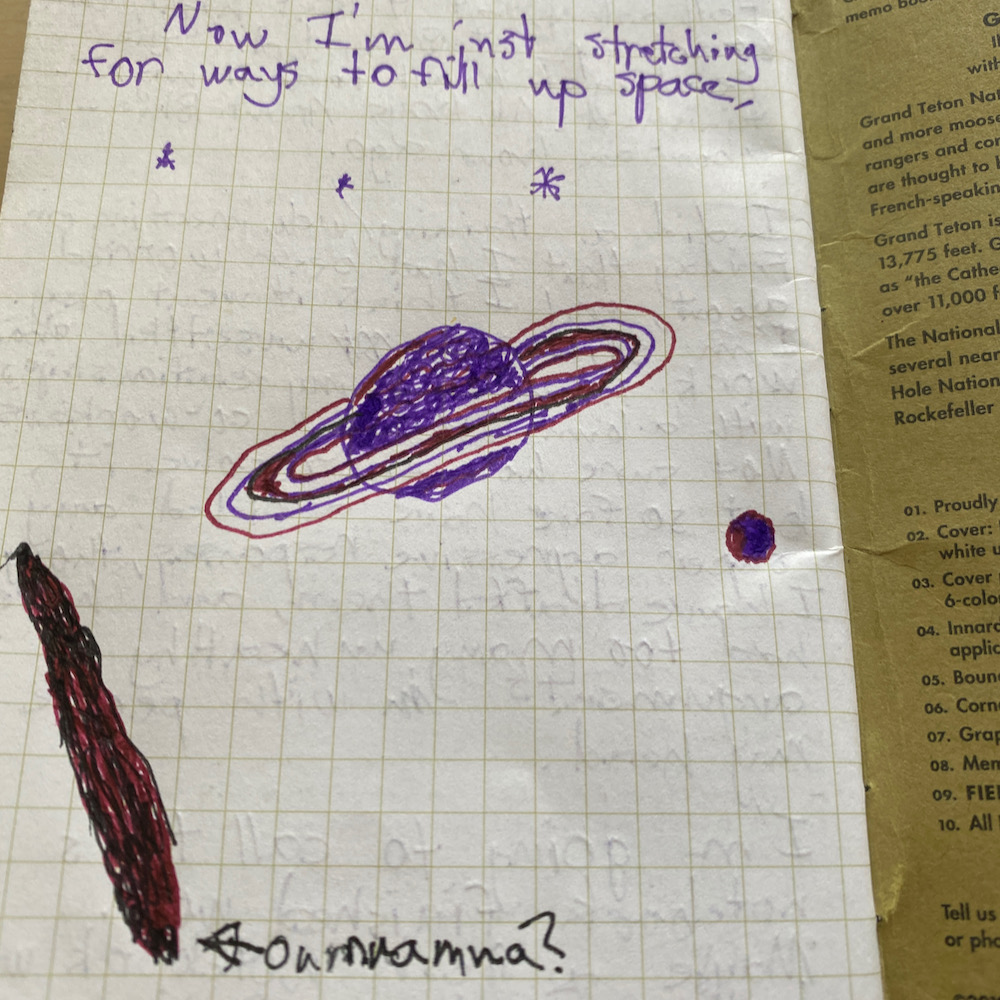 Now I'm just stretching
for ways to fill up space,
oumuamua?
memo
G
with
Grand Teton Nat
and more moose
rangers and con
are thought to
French-speakin
Grand Teton is
13,775 feet. G
as "the Cathe
over 11,000 f
The National
several near
Hole Nation
Rockefeller
01. Proudly
02. Cover:
white u
03. Cover
6-colo
04. Innard
applic
05. Boun
06. Corne
07. Grap
08. Mem
09. FIEL
10. All
Tell us
or pho